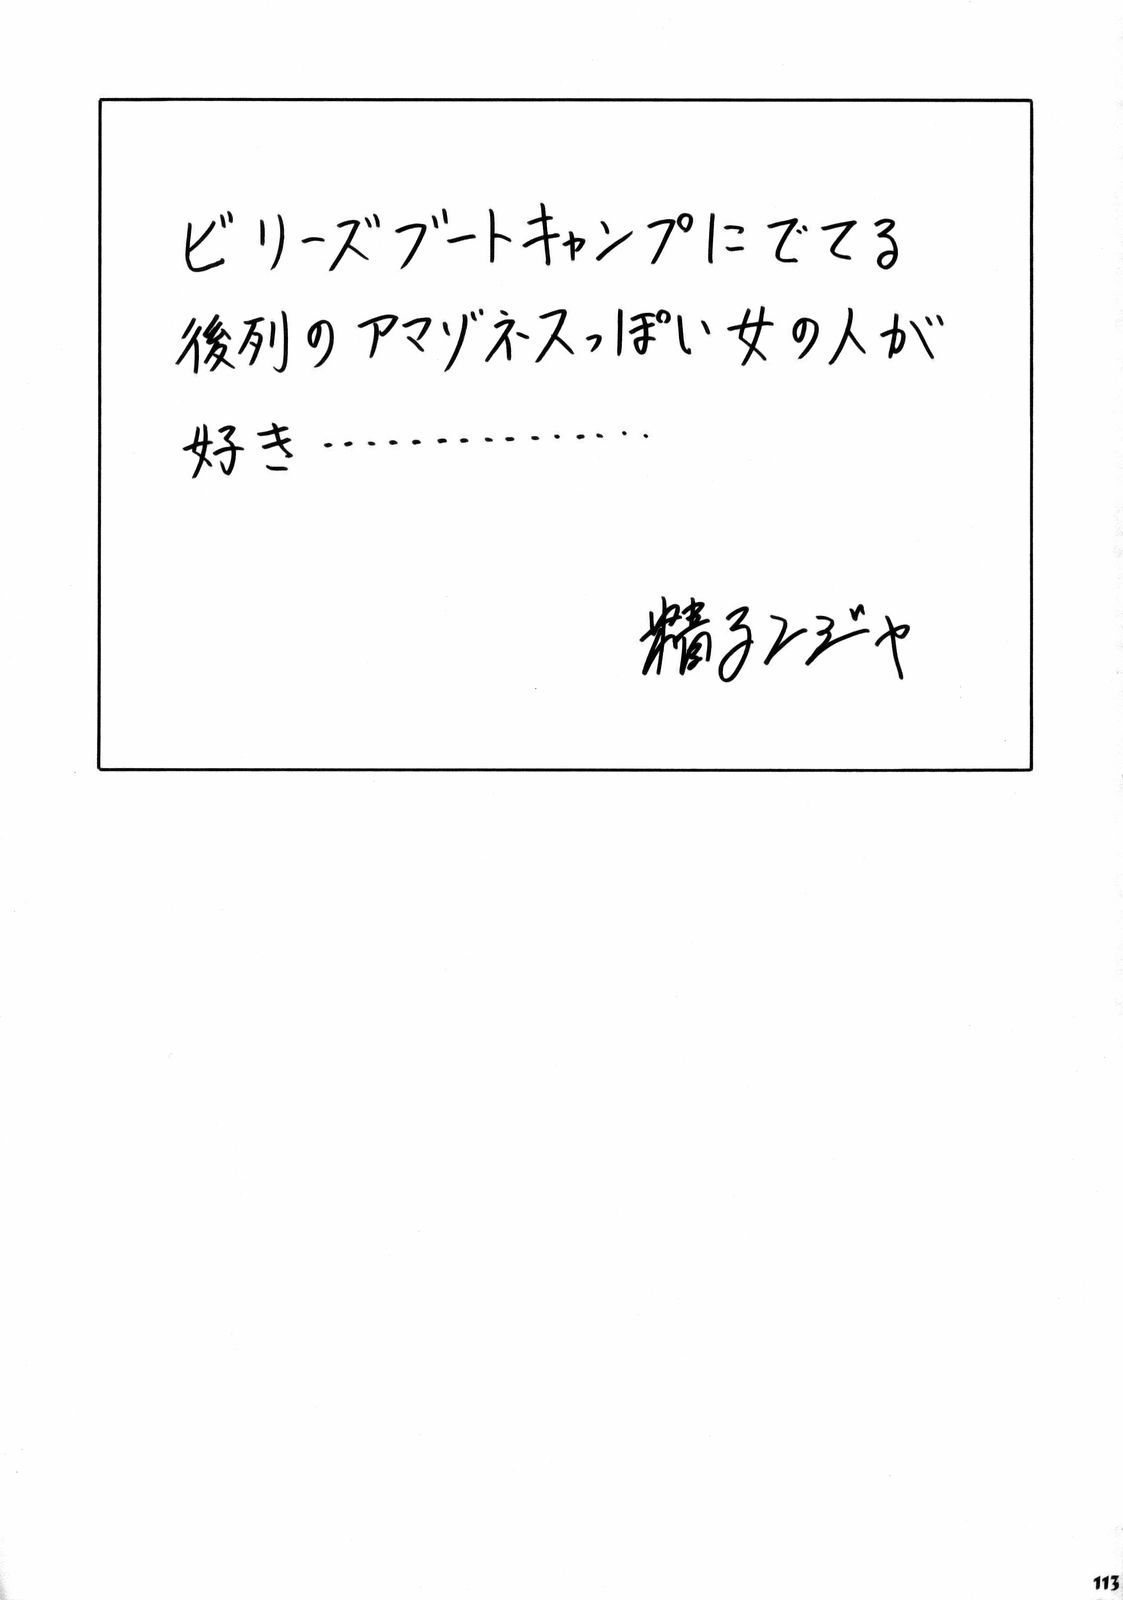 ビリーズブートキャンプにでてる
後列のアマゾネスっぽい女の人が
好き……………
精子ンジャ
113